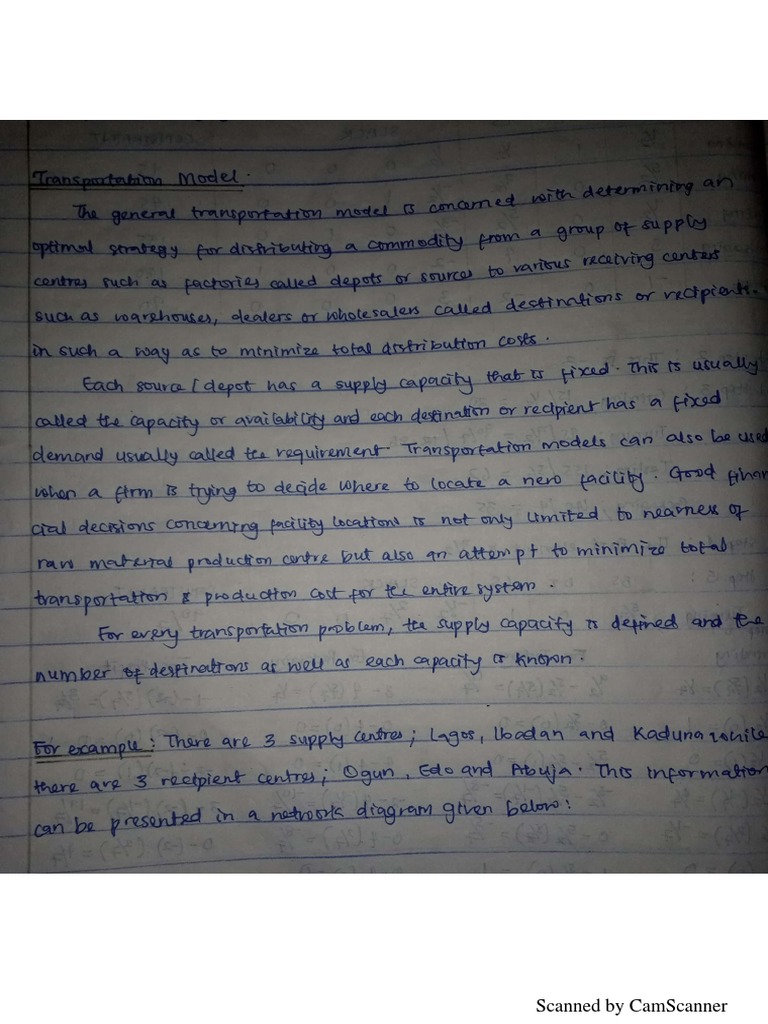 Transportation Model.
The general transportation model is concerned with determining an
optimal strategy for distributing a commodity from a group of supply
centres such as factories called depots or sources to various receiving centers
such as warehouses, dealers or wholesalers called destinations or recipients.
in such a way as to minimize total distribution costs.
Each source/depot has a supply capacity that is fixed. This is usually
called the capacity or availability and each destination or recipient has a fixed
demand usually called the requirement. Transportation models can also be used
when a firm is trying to decide where to locate a new facility. Good finan
cial decisions concerning facility locations is not only limited to nearness of
raw material production centre but also an attempt to minimize total
transportation & production cost for the entire system.
For every transportation problem, the supply capacity is defined and the
number of destinations as well as each capacity is known.
For example: There are 3 supply centres; Lagos, Ibadan and Kaduna while
there are 3 recipient centres; Ogun, Edo and Abuja. This information
can be presented in a network diagram given below:
Scanned by CamScanner